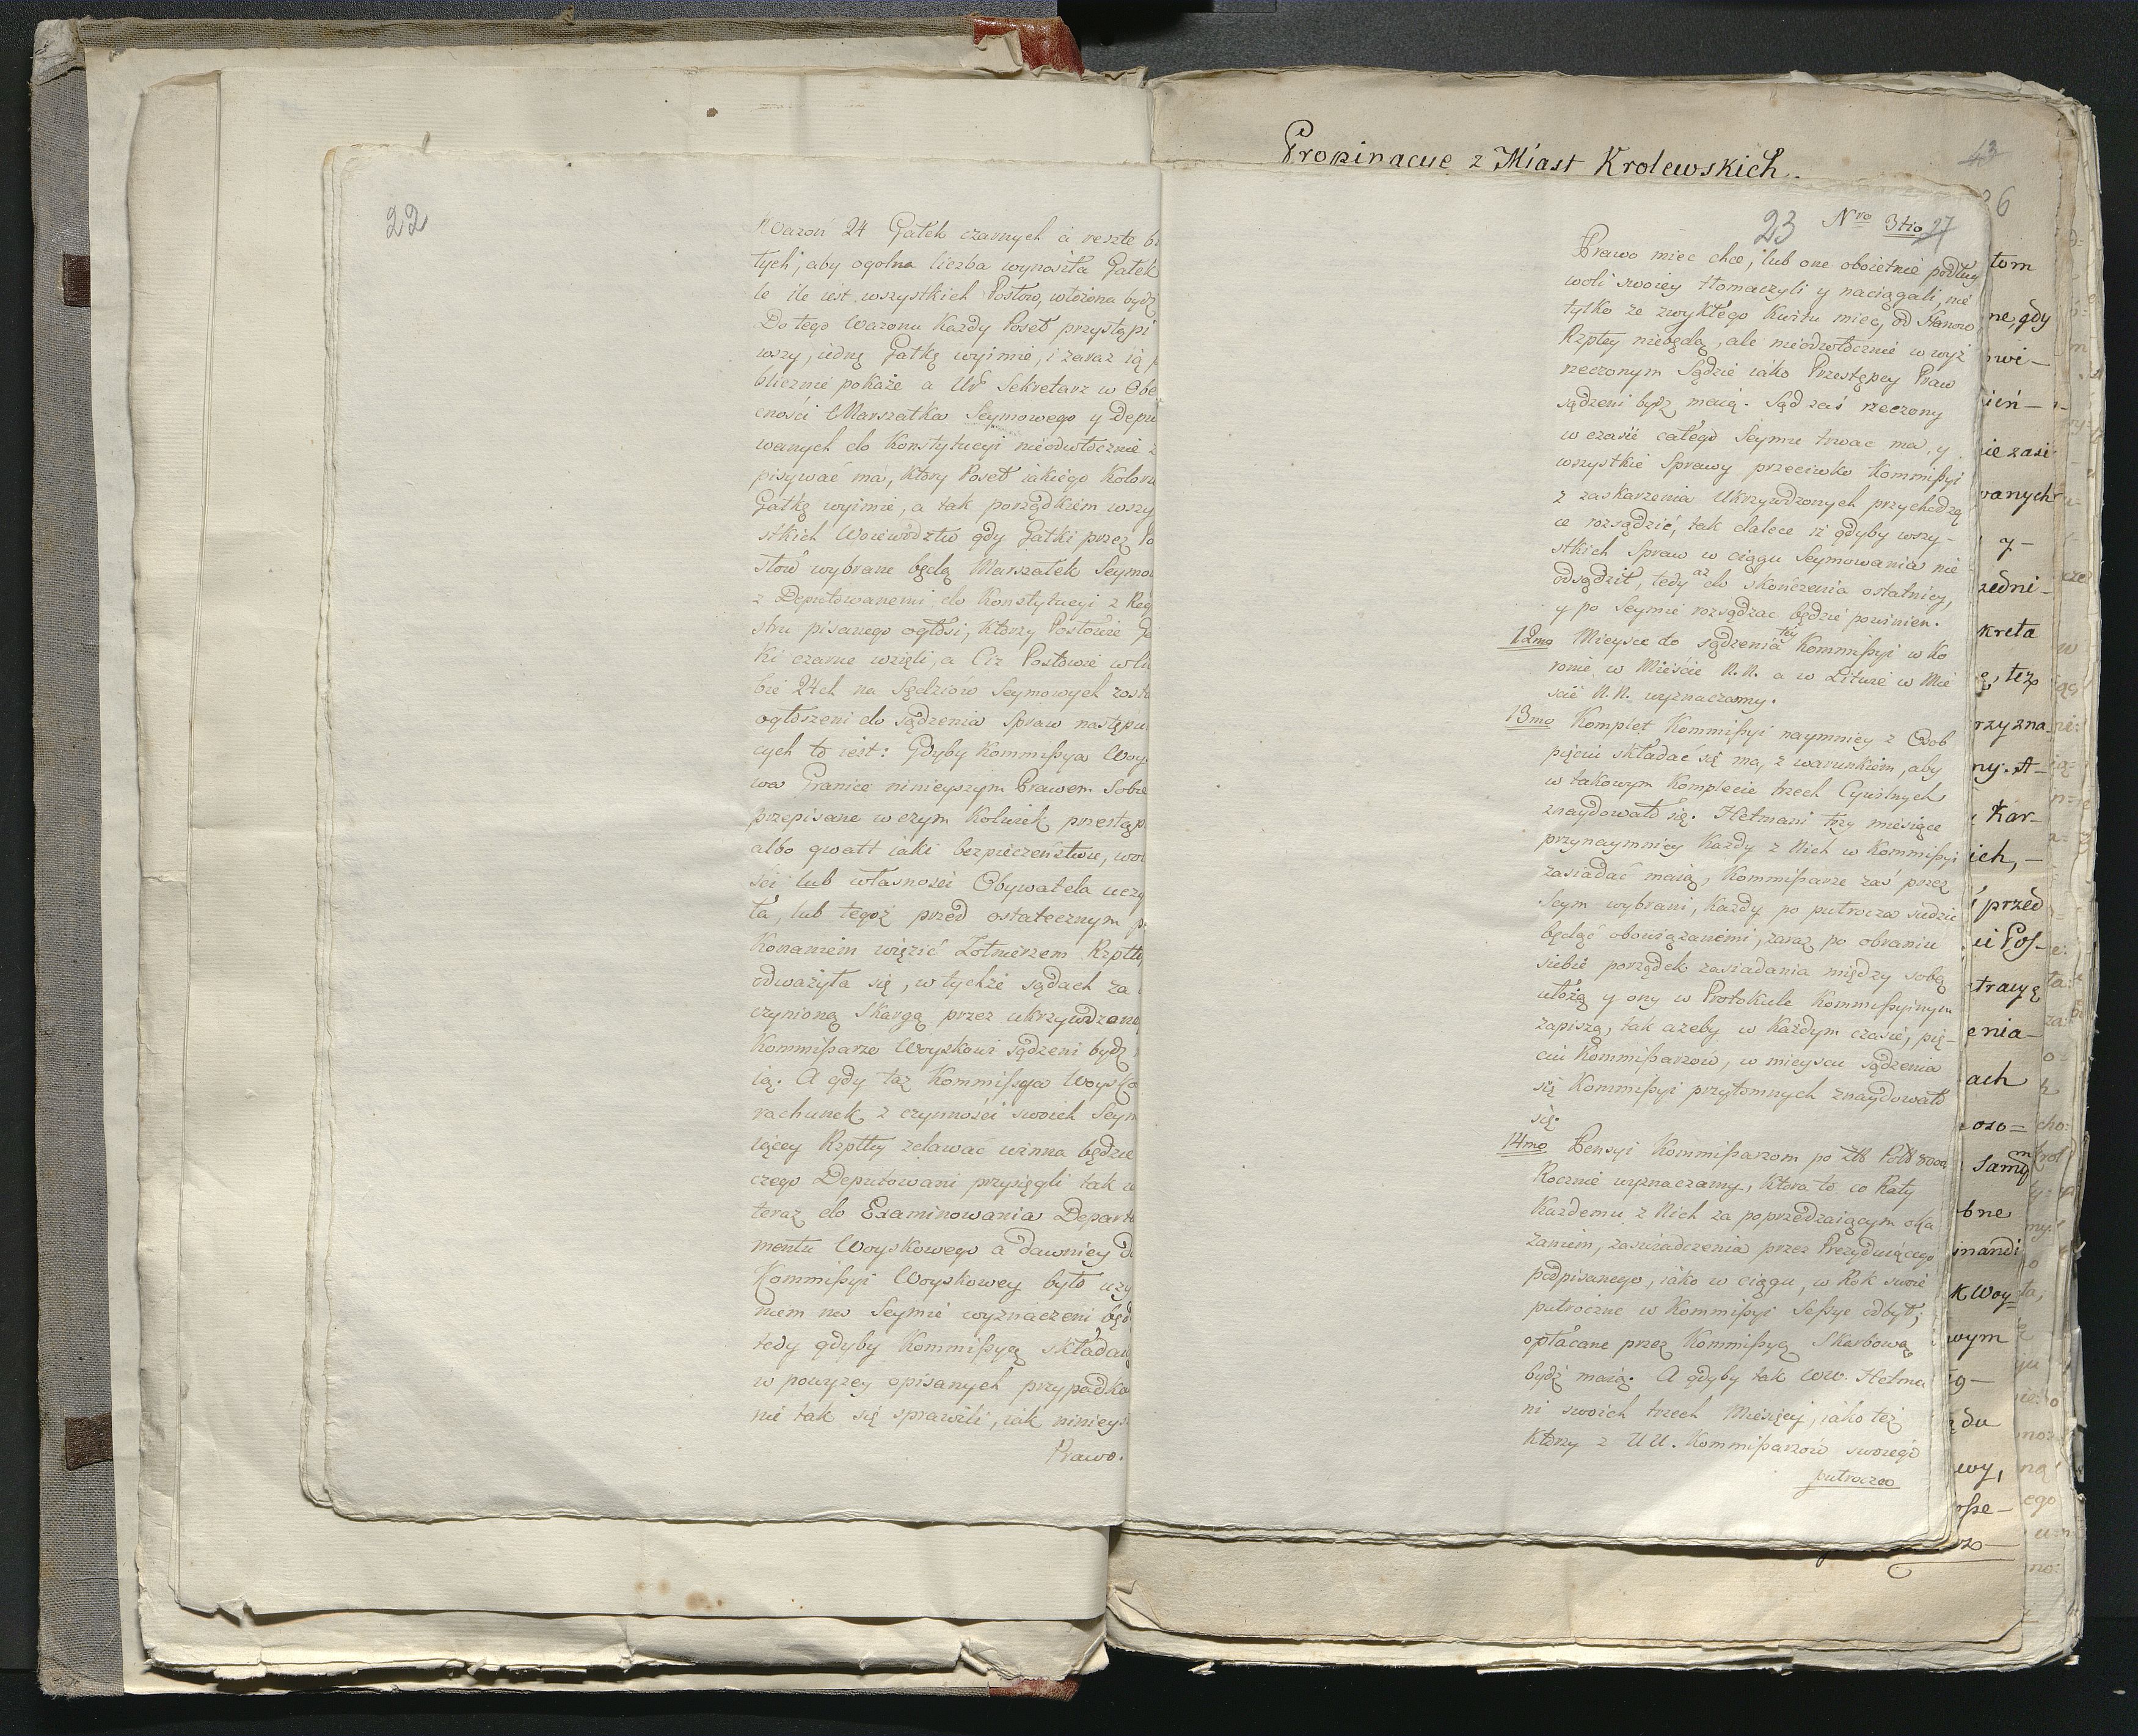 22
Wazon 24 Gałek czarnych a reszte bi
łych, aby ogolna liczba wynosiła Gałek
le ile iest wszystkich Posłow, włożona będz
Do tego Wazonu Każdy Poseł przystąpi
wszy, iedną Gałkę wyimie, i zaraz ią p
blicznie pokaże a Ur Sekretarz w Obe
cności Marszałka Seymowego y Depu
wanych do Konstytucyi nieodwłocznie z
pisywać ma, ktory Poseł iakiego Koloru
Gałkę wyimie, a tak porządkiem wszy
stkich Woiewodztw gdy Gałki przez Po
słow wybrane będą Marszałek Seymo
z Deputowanemi do Konstytucyi z Reg
stru pisanego ogłosi, ktorzy Posłowie Ga
ki czarne wzięli, a Ciz Posłowie w li
bie 24ch na Sędziow Seymowych zosta
ogłoszeni do sądzenia Spraw następu
cych to iest: Gdyby Kommissya Woy
wa Granice ninieyszym Prawem Sobie
przepisane w czym Kolwiek przestąp
albo gwałt iaki bezpieczeństwu, wol
ści lub własności Obywatela uczy
ła, lub tegoż przed ostatecznym p
Konaniem więzić Zołnierzem Rzpltey
odważyła się, w tychże sądach za
czynioną Skargą przez ukrzywdzone
Kommissarze Woyskowi sądzeni będz
ią. A gdy taż Kommissya Woysko
rachunek z czynności swoich Seym
iącey Rzpltey zdawać winna będzie
czego Deputowani przysięgli tak ia
teraz do Examinowania Departa
mentu Woyskowego a dawniey do
Kommissyi Woyskowey było uzy
niem na Seymie wyznaczeni będ
tedy gdyby Kommissyą składaią
w powyzey opisanych przypadka
nie tak się sprawili, iak ninieys
Prawo.
Propinacye z Miast Krolewskich.
43
26
23 Nro 3tio 27
Prawo miec chce, lub one oboietnie podług
woli swoiey tłomaczyli y naciągali, nie
tylko że zwykłego Kwitu miec od Stanow
Rzpltey niebędą, ale nieodwłocznie w wyż
rzeczonym Sądzie iako Przestępcy Praw
sądzeni bydz maią. Sąd zaś rzeczony
w czasie całego Seymu trwac ma, y
wszystkie Sprawy przeciwko Kommissyi
z zaskarzenia Ukrzywdzonych przychodzą
ce rozsądzić, tak dalece iż gdyby wszy-
stkich Spraw w ciągu Seymowania nie
odsądził, tedy aż do skończenia ostatniey,
y po Seymie rozsądzac będzie powinien.
12mo Mieysce do sądzenia tey Kommissyi w Ko
ronie w Mieście N.N. a w Litwie w Mie
ście N.N. wyznaczamy.
13mo Komplet Kommissyi naymniey z Osob
pięciu składać się ma, z warunkiem, aby
w takowym Komplecie trzech Cywilnych
znaydowało się. Hetmani trzy miesiące
przynaymniey Każdy z Nich w Kommissyi
zasiadać maią, Kommissarze zaś przez
Seym wybrani, Każdy po putrocza siedzie
będąc obowiązanemi, zaraz po obraniu
siebie porządek zasiadania między sobą
ułożą y ony w Protokule Kommissyinym
zapiszą, tak azeby w Każdym czasie, pię-
ciu Kommissarzow, w mieyscu sądzenia
się Kommissyi przytomnych znaydowało
się.
14mo Pensyi Kommissarzom po Złł Poll 8000
Rocznie wyznaczamy, Ktora to co Raty
Każdemu z Nich za poprzedzaiącym oka
zaniem, zaswiadczenia przez Prezyduiącego
podpisanego, iako w ciągu, w Rok swoie
putroczne w Kommissyi Sessye odbył,
opłacane przez Kommissyą Skarbową
bydź maią. A gdyby tak WW. Hetma
ni swoich trzech Miesięcy, iako też
Ktory z UU. Kommissarzow swoiego
putrocza
tom
ne, gdy
wi-
ień-
ie zasi
wanych
y-
zedni-
kreta
ę, też
rzyzna
ny. A-
Kar-
ich, -
przed
ui Pos-
trawę
enia-
ach
oso=
samym
bne
mandi
k Woy=
wym
g-
du
wy,
sse-